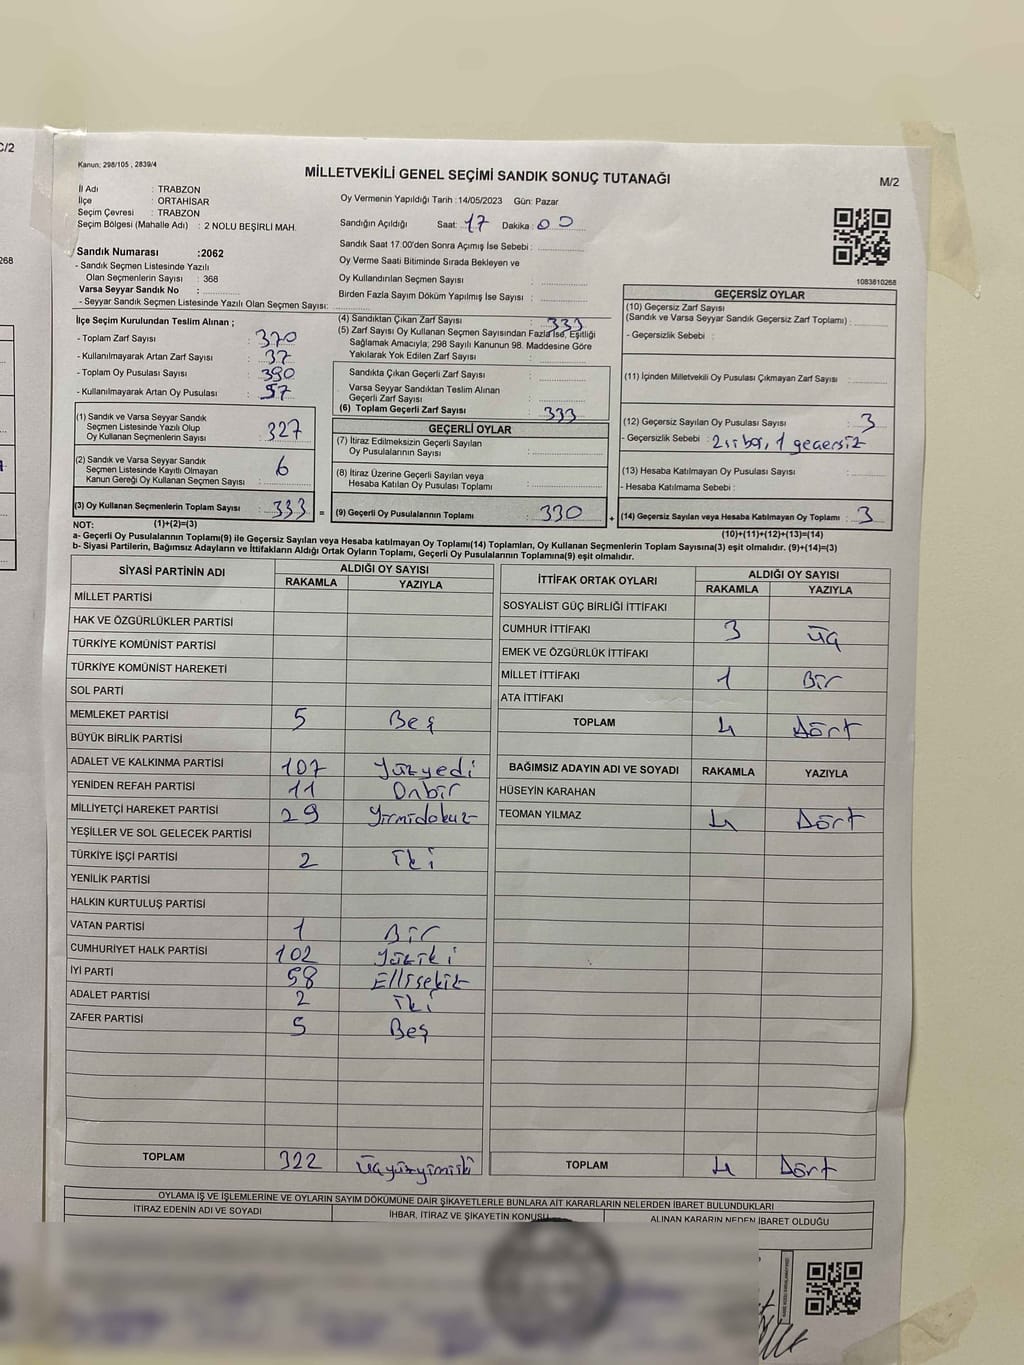 C/2
268
Kanun; 298/105 , 2839/4
MİLLETVEKİLİ GENEL SEÇİMİ SANDIK SONUÇ TUTANAĞI
M/2
İl Adı : TRABZON
İlçe : ORTAHİSAR
Seçim Çevresi : TRABZON
Seçim Bölgesi (Mahalle Adı) : 2 NOLU BEŞİRLİ MAH.
Oy Vermenin Yapıldığı Tarih :14/05/2023 Gün: Pazar
Sandığın Açıldığı Saat: 17 Dakika : 00
Sandık Saat 17.00'den Sonra Açımış İse Sebebi :
Oy Verme Saati Bitiminde Sırada Bekleyen ve
Oy Kullandırılan Seçmen Sayısı :
Birden Fazla Sayım Döküm Yapılmış İse Sayısı :
1083610268
Sandık Numarası :2062
- Sandık Seçmen Listesinde Yazılı
Olan Seçmenlerin Sayısı : 368
Varsa Seyyar Sandık No :
- Seyyar Sandık Seçmen Listesinde Yazılı Olan Seçmen Sayısı:
İlçe Seçim Kurulundan Teslim Alınan ;
- Toplam Zarf Sayısı : 370
- Kullanılmayarak Artan Zarf Sayısı : 37
- Toplam Oy Pusulası Sayısı : 390
- Kullanılmayarak Artan Oy Pusulası : 57
(1) Sandık ve Varsa Seyyar Sandık
Seçmen Listesinde Yazılı Olup
Oy Kullanan Seçmenlerin Sayısı : 327
(2) Sandık ve Varsa Seyyar Sandık
Seçmen Listesinde Kayıtlı Olmayan
Kanun Gereği Oy Kullanan Seçmen Sayısı : 6
(3) Oy Kullanan Seçmenlerin Toplam Sayısı : 333 =
(4) Sandıktan Çıkan Zarf Sayısı : 333
(5) Zarf Sayısı Oy Kullanan Seçmen Sayısından Fazla İse, Eşitliği
Sağlamak Amacıyla; 298 Sayılı Kanunun 98. Maddesine Göre
Yakılarak Yok Edilen Zarf Sayısı :
Sandıkta Çıkan Geçerli Zarf Sayısı :
Varsa Seyyar Sandıktan Teslim Alınan
Geçerli Zarf Sayısı :
(6) Toplam Geçerli Zarf Sayısı : 333
GEÇERLİ OYLAR
(7) İtiraz Edilmeksizin Geçerli Sayılan
Oy Pusulalarının Sayısı :
(8) İtiraz Üzerine Geçerli Sayılan veya
Hesaba Katılan Oy Pusulası Toplamı :
(9) Geçerli Oy Pusulalarının Toplamı : 330 +
GEÇERSİZ OYLAR
(10) Geçersiz Zarf Sayısı
(Sandık ve Varsa Seyyar Sandık Geçersiz Zarf Toplamı) :
- Geçersizlik Sebebi :
(11) İçinden Milletvekili Oy Pusulası Çıkmayan Zarf Sayısı :
(12) Geçersiz Sayılan Oy Pusulası Sayısı : 3
- Geçersizlik Sebebi : 2si boş, 1 geçersiz
(13) Hesaba Katılmayan Oy Pusulası Sayısı :
- Hesaba Katılmama Sebebi :
(14) Geçersiz Sayılan veya Hesaba Katılmayan Oy Toplamı : 3
NOT: (1)+(2)=(3)
(10)+(11)+(12)+(13)=(14)
a- Geçerli Oy Pusulalarının Toplamı(9) ile Geçersiz Sayılan veya Hesaba katılmayan Oy Toplamı(14) Toplamları, Oy Kullanan Seçmenlerin Toplam Sayısına(3) eşit olmalıdır. (9)+(14)=(3)
b- Siyasi Partilerin, Bağımsız Adayların ve İttifakların Aldığı Ortak Oyların Toplamı, Geçerli Oy Pusulalarının Toplamına(9) eşit olmalıdır.
SİYASİ PARTİNİN ADI ALDIĞI OY SAYISI
RAKAMLA YAZIYLA
MİLLET PARTİSİ
HAK VE ÖZGÜRLÜKLER PARTİSİ
TÜRKİYE KOMÜNİST PARTİSİ
TÜRKİYE KOMÜNİST HAREKETİ
SOL PARTİ
MEMLEKET PARTİSİ 5 Beş
BÜYÜK BİRLİK PARTİSİ
ADALET VE KALKINMA PARTİSİ 107 Yüzyedi
YENİDEN REFAH PARTİSİ 11 Onbir
MİLLİYETÇİ HAREKET PARTİSİ 29 Yirmidokuz
YEŞİLLER VE SOL GELECEK PARTİSİ
TÜRKİYE İŞÇİ PARTİSİ 2 İki
YENİLİK PARTİSİ
HALKIN KURTULUŞ PARTİSİ
VATAN PARTİSİ 1 Bir
CUMHURİYET HALK PARTİSİ 102 Yüziki
İYİ PARTİ 58 Ellisekiz
ADALET PARTİSİ 2 İki
ZAFER PARTİSİ 5 Beş
TOPLAM 322 Üçyüzyirmiiki
İTTİFAK ORTAK OYLARI ALDIĞI OY SAYISI
RAKAMLA YAZIYLA
SOSYALİST GÜÇ BİRLİĞİ İTTİFAKI
CUMHUR İTTİFAKI 3 Üç
EMEK VE ÖZGÜRLÜK İTTİFAKI
MİLLET İTTİFAKI 1 Bir
ATA İTTİFAKI
TOPLAM 4 Dört
BAĞIMSIZ ADAYIN ADI VE SOYADI RAKAMLA YAZIYLA
HÜSEYİN KARAHAN
TEOMAN YILMAZ 4 Dört
TOPLAM 4 Dört
OYLAMA İŞ VE İŞLEMLERİNE VE OYLARIN SAYIM DÖKÜMÜNE DAİR ŞİKAYETLERLE BUNLARA AİT KARARLARIN NELERDEN İBARET BULUNDUKLARI
İTİRAZ EDENİN ADI VE SOYADI İHBAR, İTİRAZ VE ŞİKAYETİN KONUSU ALINAN KARARIN NEDEN İBARET OLDUĞU